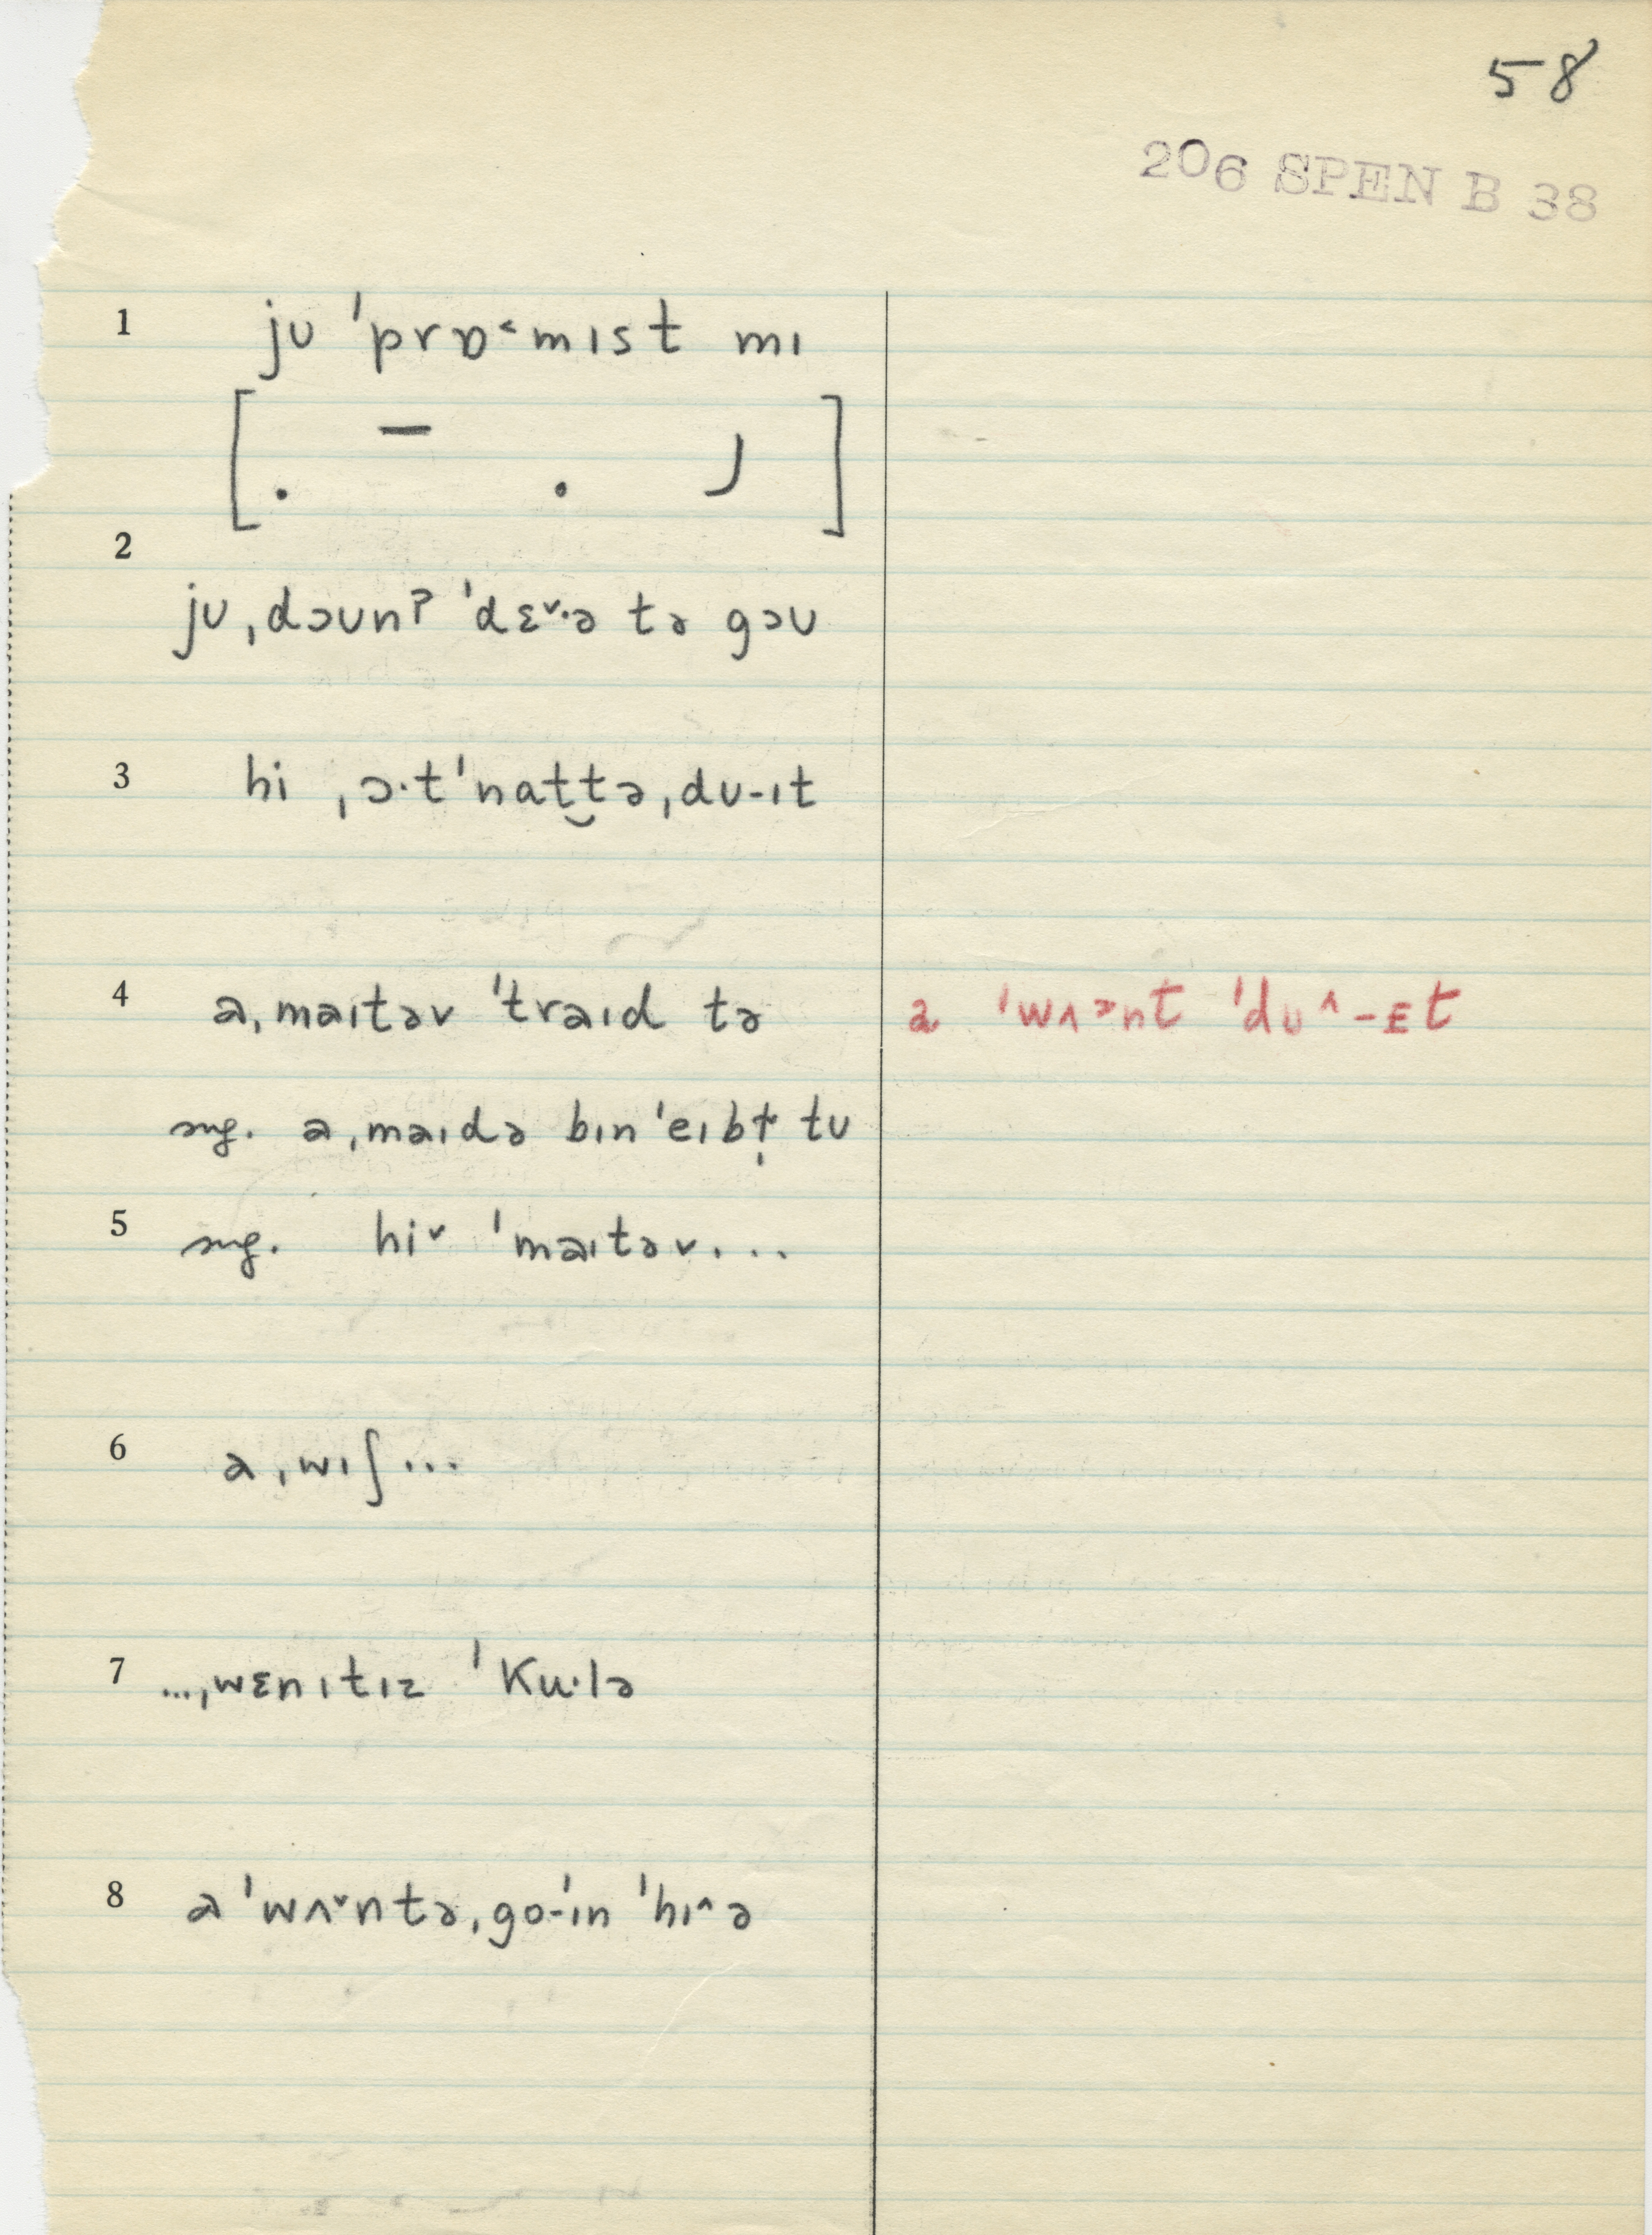 58
206 SPEN B 38
1 jʊ ˈprɒ˂mɪst mɪ
[. – . ]
2
jʊ ˌdɔʊnʔ ˈdɛ˅·ə tə gɔʊ
3 hi ˌɔ·tˈnat̬t̬ə ˌdʊ-ɪt
4 a ˌmaɪtəv ˈtraɪd tə a ˈwʌɔnt ˈdʊ˄-ɛt
sug. a ˌmaɪdə bɪn ˈeɪbt̩ tʊ
5 sug. hi˅ ˈmaɪtəv...
6 a ˌwɪʃ...
7 ...ˌwɛnɪtɪz ˈku·lə
8 a ˈwʌ˅ntə ˌgo-ˈɪn ˈhɪ˄ə